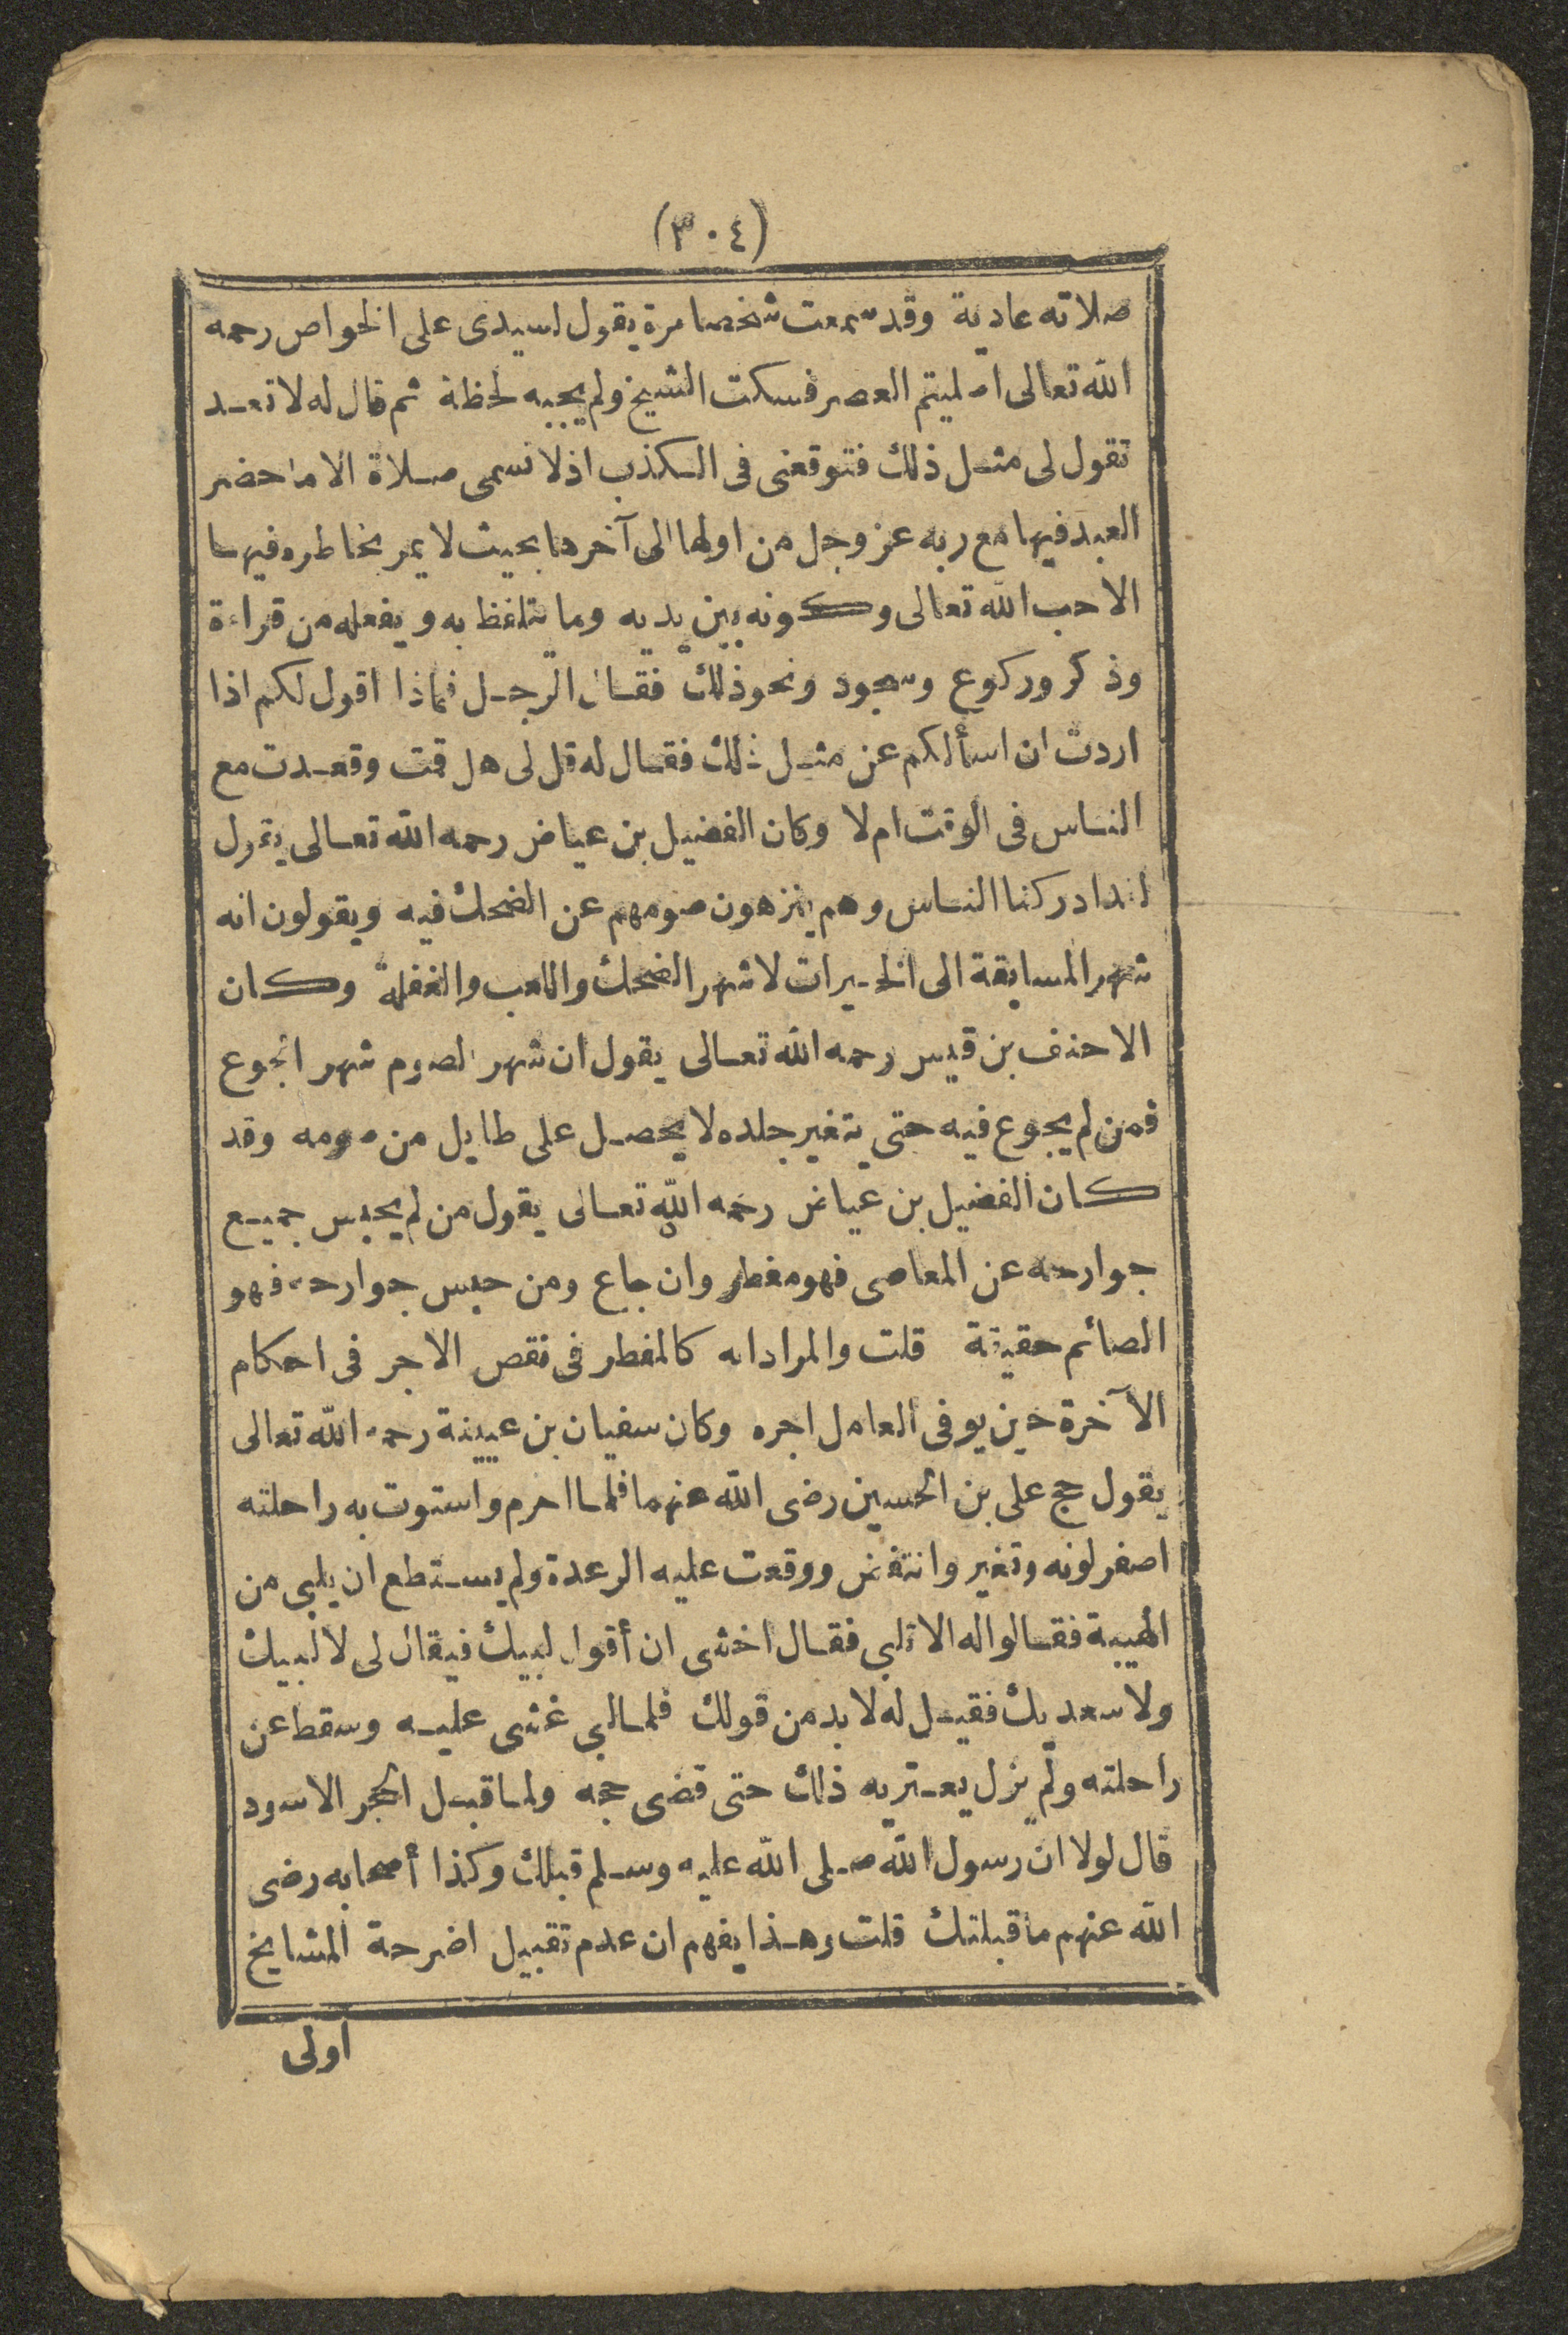 (٣٠٤)
صلاته عادية وقد سمعت شخصا مرة يقول لسيدى على الخواص رحمه
الله تعالى اصليتم العصر فسكت الشيخ ولم يجبه لحظة ثم قال له لا تعد
تقول لى مثل ذلك فتوقعنى فى الكذب اذلا نسمى صلاة الا ما حضر
العبد فيها مع ربه عز وجل من اولها الى آخرها بحيث لا يمر بخاطره فيها
الا حب الله تعالى وكونه بين يديه وما يتلفظ به ويفعله من قراءة
وذكر وركوع وسجود ونحو ذلك فقال الرجل فماذا اقول لكم اذا
اردت ان اسألكم عن مثل ذلك فقال له قل لى هل قمت وقعدت مع
الناس فى الوقت ام لا وكان الفضيل بن عياض رحمه الله تعالى يقول
لقد ادركنا الناس وهم ينزهون صومهم عن الضحك فيه ويقولون انه
شهر المسابقة الى الخيرات لا شهر الضحك واللعب والغفلة وكان
الاحنف بن قيس رحمه الله تعالى يقول ان شهر الصوم شهر الجوع
فمن لم يجوع فيه حتى يتغير جلده لا يحصل على طايل من صومه وقد
كان الفضيل بن عياض رحمه الله تعالى يقول من لم يحبس جميع
جوارحه عن المعاصى فهو مفطر وان جاع ومن حبس جوارحه فهو
الصائم حقيقة قلت والمراد انه كالمفطر فى نقص الاجر فى احكام
الآخرة حين يوفى العامل اجره وكان سفيان بن عيينة رحمه الله تعالى
يقول حج على بن الحسين رضى الله عنهما فلما احرم واستوت به راحلته
اصفر لونه وتغير وانتفض ووقعت عليه الرعدة ولم يستطع ان يلبى من
الهيبة فقالوا له الا تلبى فقال اخشى ان أقول لبيك فيقال لى لا لبيك
ولا سعديك فقيل له لا بد من قولك فلما لبى غشى عليه وسقط عن
راحلته ولم يزل يعتريه ذلك حتى قضى حجه ولما قبل الحجر الاسود
قال لولا ان رسول الله صلى الله عليه وسلم قبلك وكذا أصحابه رضى
الله عنهم ما قبلتك قلت وهذا يفهم ان عدم تقبيل اضرحة المشايخ
اولى